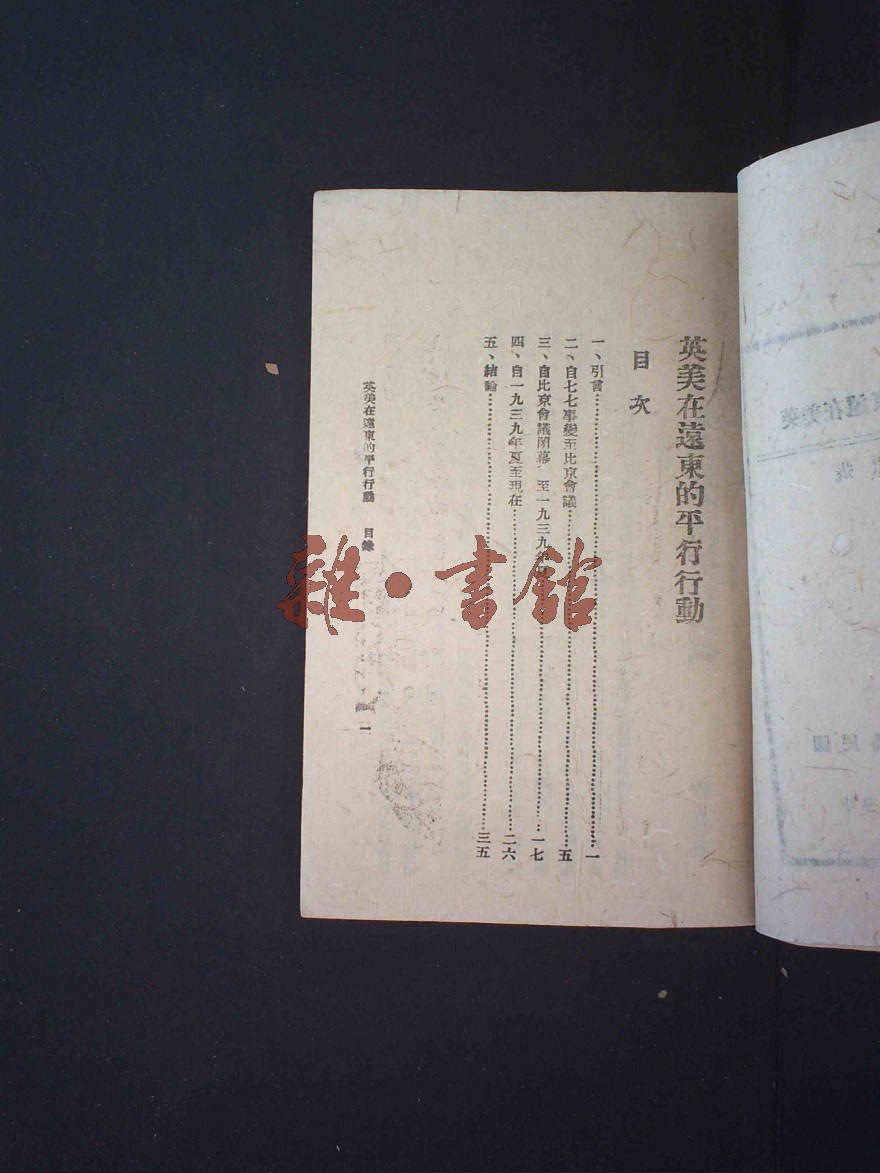 英美在遠東的平行行動
目次
一、引言……一
二、自七七事變至比京會議……五
三、自比京會議閉幕 至一九三九年……一七
四、自一九三九年夏至現在……二六
五、結論……三五
英美在遠東的平行行動 目錄 一
雜·書館